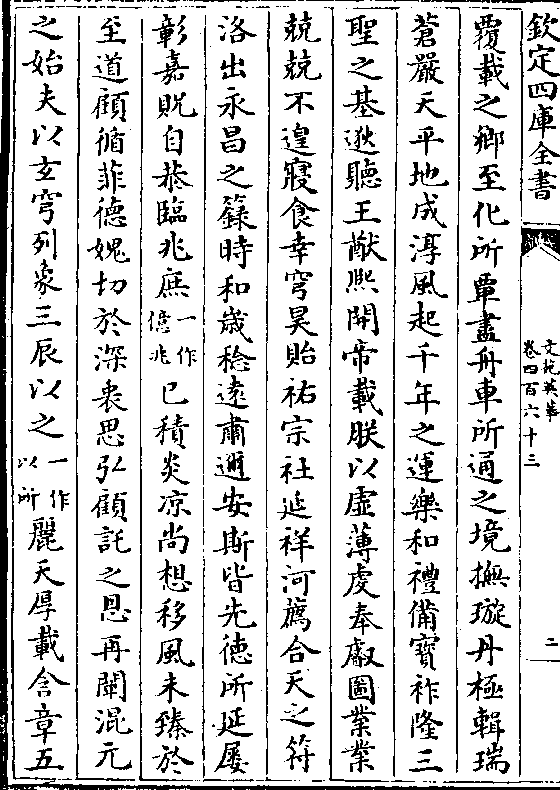 欽定四庫全書
文苑英華
卷四百六十三
二
覆載之鄉至化所覃盡舟車所通之境撫璇丹極輯瑞
蒼嚴天平地成淳風起千年之運樂和禮備寶祚隆三
聖之基逖聽王猷熙開帝載朕以虚薄虔奉嚴圖業業
兢兢不遑寢食幸穹昊貽祐宗社延祥河薦合天之符
洛出永昌之籙時和歳稔逺肅邇安斯皆先徳所延屢
彰嘉貺自恭臨兆庶一作億兆已積炎凉尚想移風未臻於
至道顧循菲德媿切於深衷思弘顧託之恩再闡混元
之始夫以玄穹列象三辰以之一作以所麗天厚載含章五